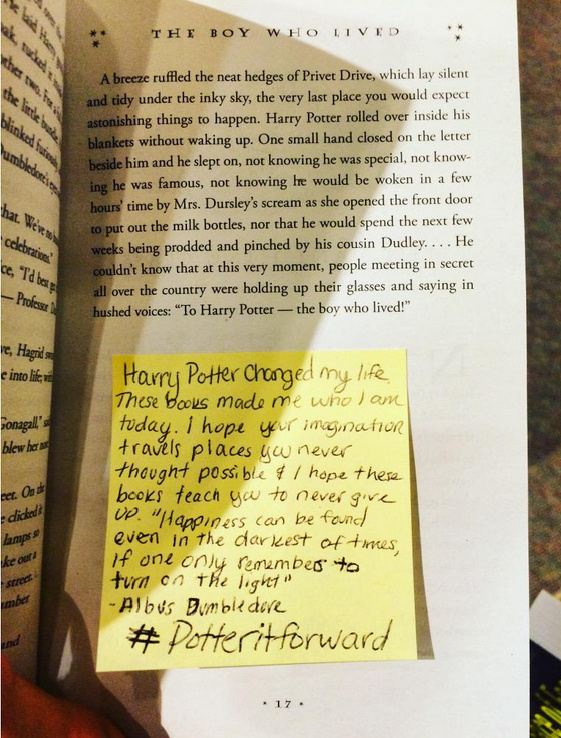 He laid Harry
tucked it
other two. For a
the little
blinked
that. We've no
celebrations."
"I'd best
— Professor
Hagrid
into life;
blew her
On
clicked it
lamps so
out a
street.
and
THE BOY WHO LIVED
A breeze ruffled the neat hedges of Privet Drive, which lay silent
and tidy under the inky sky, the very last place you would expect
astonishing things to happen. Harry Potter rolled over inside his
blankets without waking up. One small hand closed on the letter
beside him and he slept on, not knowing he was special, not know-
ing he was famous, not knowing he would be woken in a few
hours' time by Mrs. Dursley's scream as she opened the front door
to put out the milk bottles, nor that he would spend the next few
weeks being prodded and pinched by his cousin Dudley. . . . He
couldn't know that at this very moment, people meeting in secret
all over the country were holding up their glasses and saying in
hushed voices: "To Harry Potter — the boy who lived!"
Harry Potter Changed my life.
These books made me who I am
today. I hope your imagination
travels places you never
thought possible & I hope these
books teach you to never give
up. "Happiness can be found
even in the darkest of times,
if one only remembers to
turn on the light"
-Albus Dumbledore
#Potteritforward
• 17 •